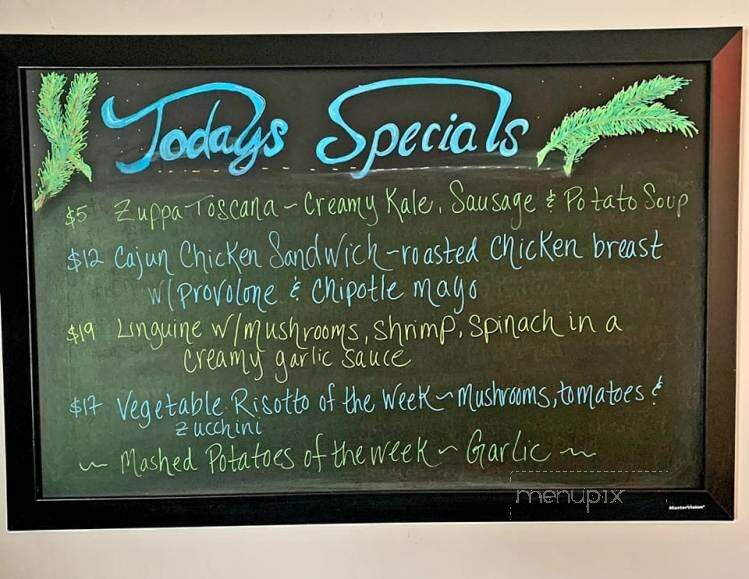 Todays Specials
$5 Zuppa Toscana ~ Creamy Kale, Sausage & Potato Soup
$12 Cajun Chicken Sandwich - roasted chicken breast
w/ provolone & chipotle mayo
$19 Linguine w/ mushrooms, shrimp, spinach in a
creamy garlic sauce
$17 Vegetable Risotto of the Week ~ Mushrooms, tomatoes &
zucchini
~ Mashed Potatoes of the week ~ Garlic ~
menupix
MasterVision